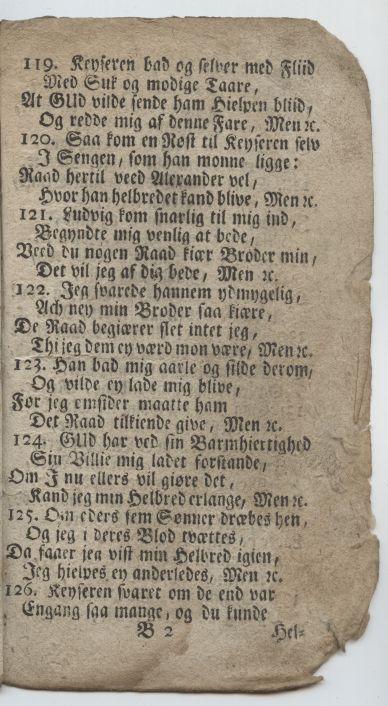 119. Keyseren bad og selver med Fliid
Med Suk og modige Taare,
At GUd vilde sende ham Hielpen bliid,
Og redde mig af denne Fare, Men ꝛc.
120. Saa kom en Røst til Keyseren selv
I Sengen, som han monne ligge:
Raad hertil veed Alexander vel,
Hvor han helbredet kand blive, Men ꝛc.
121. Ludvig kom snarlig til mig ind,
Begyndte mig venlig at bede,
Veed du nogen Raad kiær Broder min,
Det vil jeg af dig bede, Men ꝛc.
122. Jeg svarede hannem ydmygelig,
Ach ney min Broder saa kiære,
De Raad begiærer slet intet jeg,
Thi jeg dem ey værd mon være, Men ꝛc.
123. Han bad mig aarle og silde derom,
Og vilde ey lade mig blive,
For jeg omsider maatte ham
Det Raad tilkiende give, Men ꝛc.
124. GUd har ved sin Barmhiertighed
Sin Villie mig ladet forstande,
Om I nu ellers vil giøre det,
Kand jeg min Helbred erlange, Men ꝛc.
125. Om eders fem Sønner dræbes hen,
Og jeg i deres Blod tvættes,
Da faaer jeg vist min Helbred igien,
Jeg hielpes ey anderledes, Men ꝛc.
126. Keyseren svaret om de end var
Engang saa mange, og du kunde
B 2 Hel=